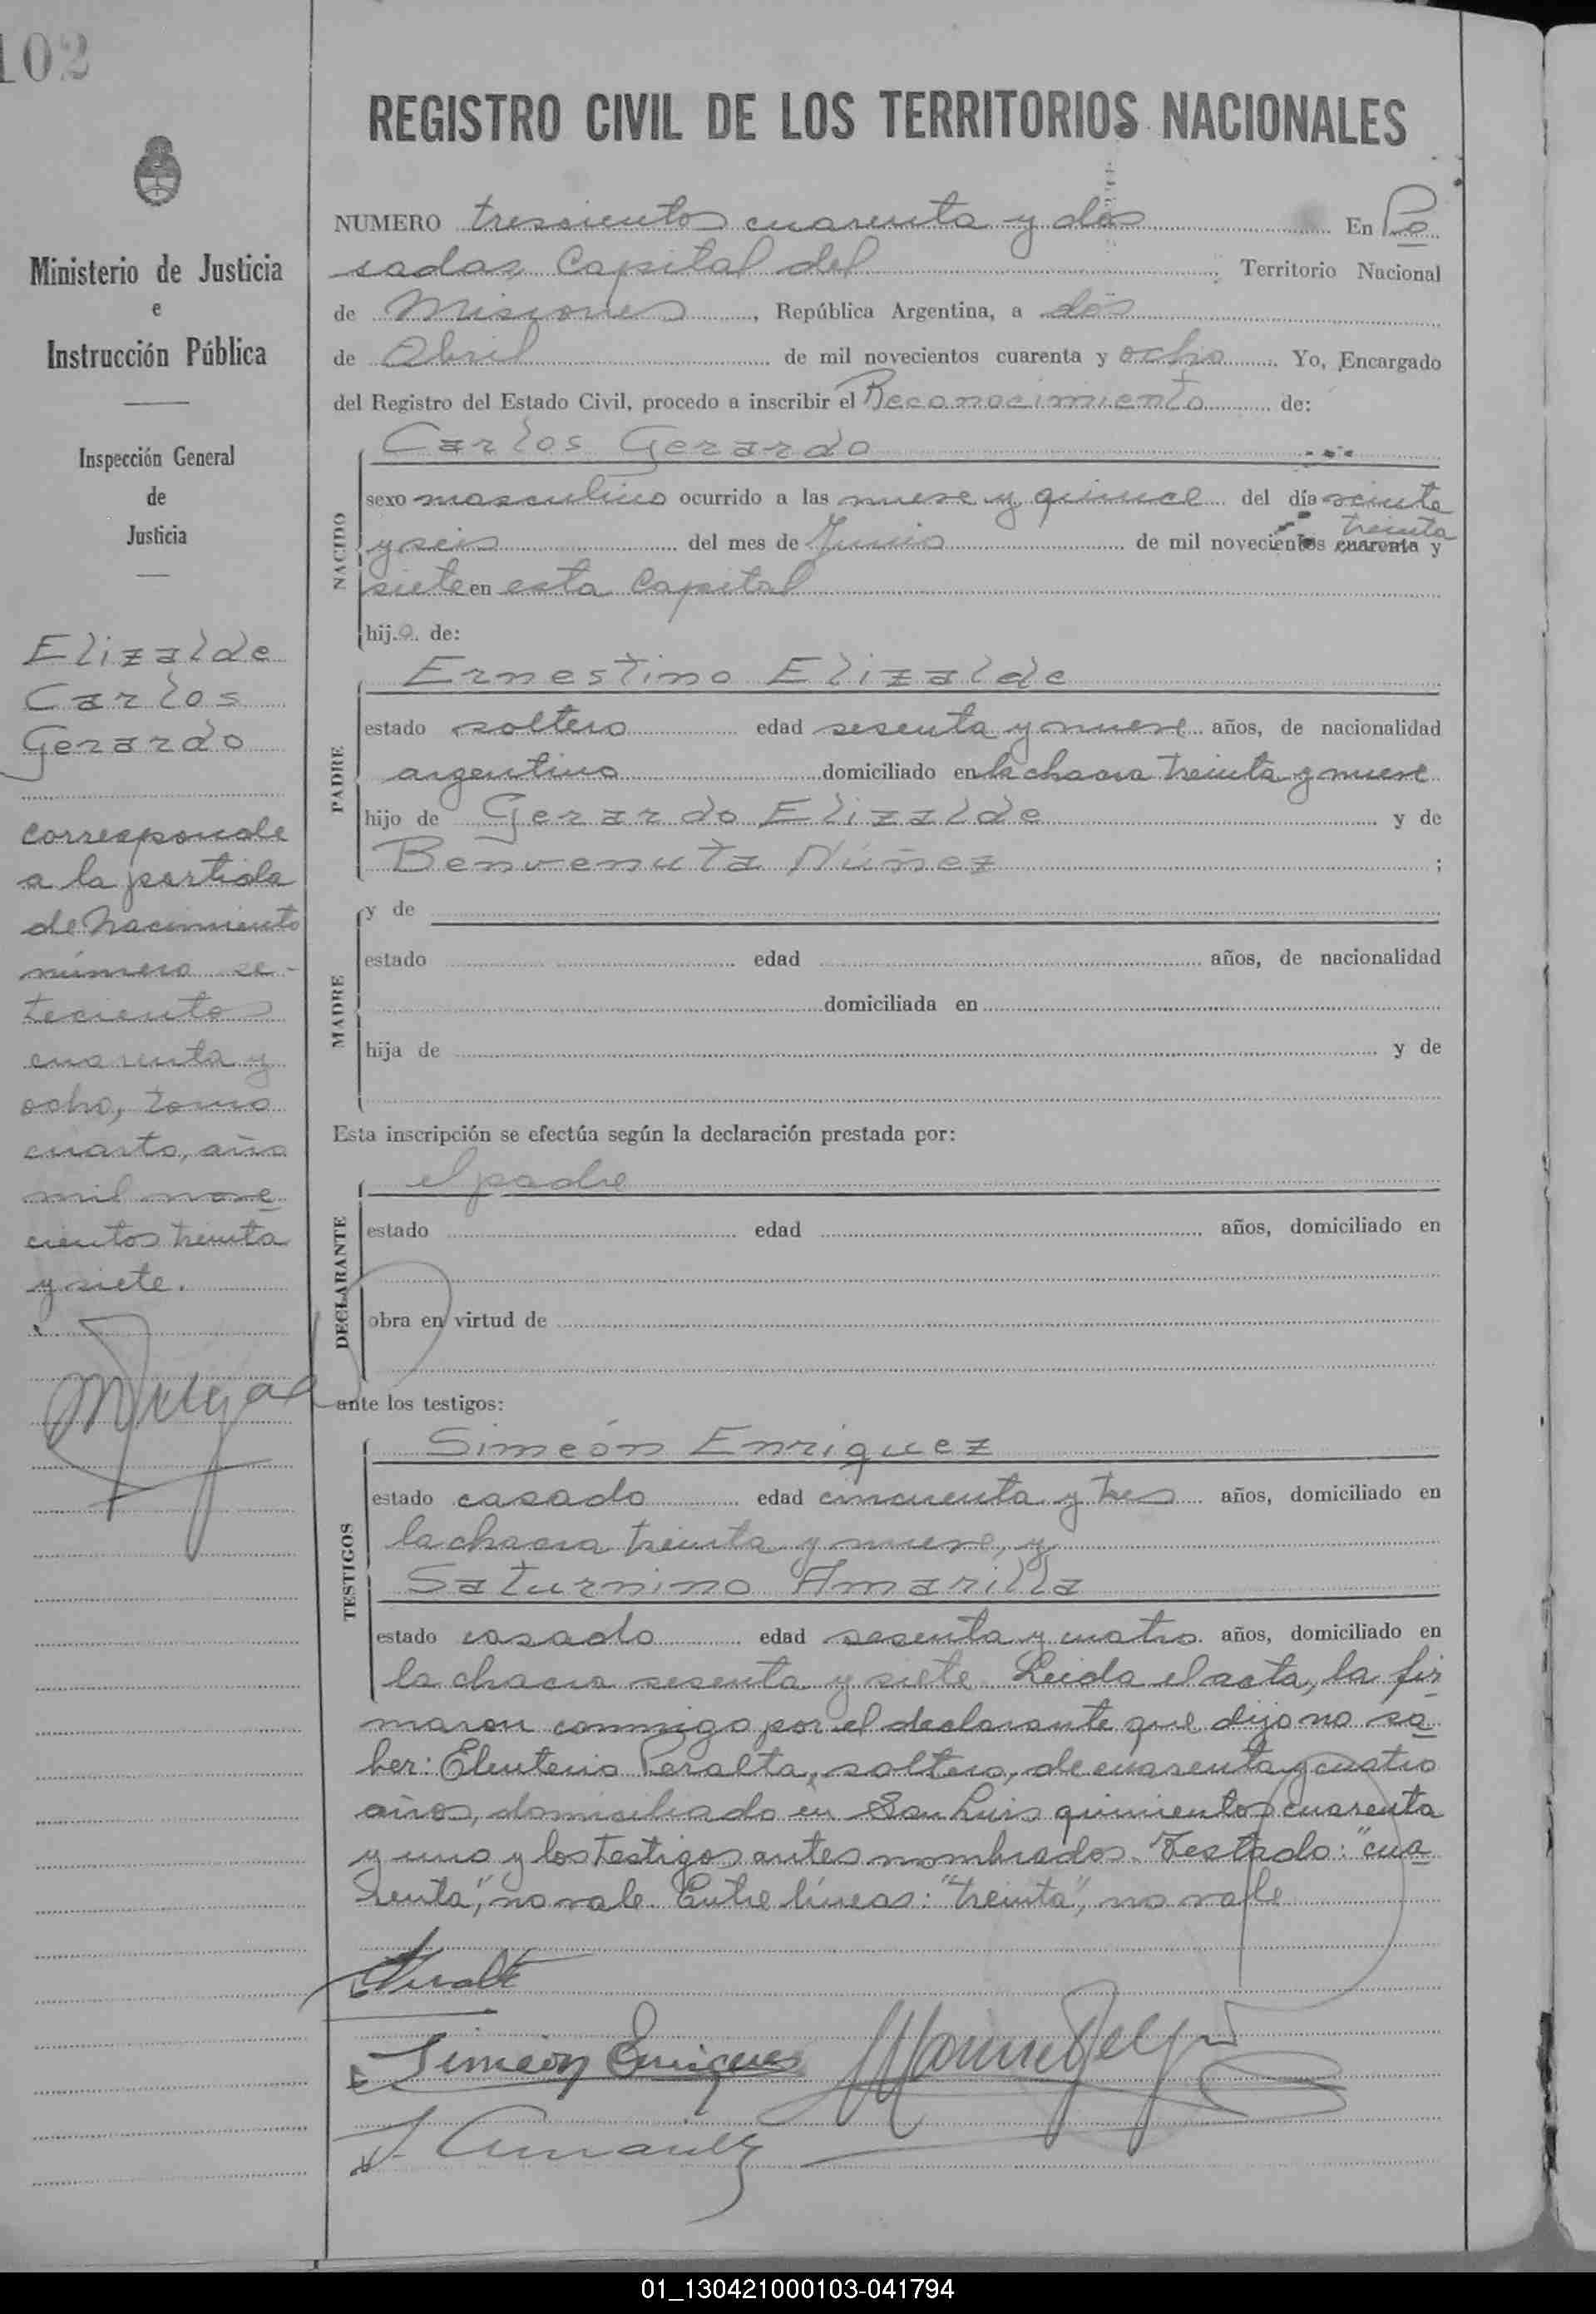 102
Ministerio de Justicia
e
Instrucción Pública
Inspección General
de
Justicia
Elizalde
Carlos
Gerardo
corresponde
a la partida
de Nacimiento
número se-
tecientos
cuarenta y
ocho, tomo
cuarto, año
mil nove
cientos treinta
y siete.
REGISTRO CIVIL DE LOS TERRITORIOS NACIONALES
NUMERO trescientos cuarenta y dos En Po
sadas, Capital del Territorio Nacional
de Misiones, República Argentina, a dos
de Abril de mil novecientos cuarenta y ocho. Yo, Encargado
del Registro del Estado Civil, procedo a inscribir el Reconocimiento de:
NACIDO
Carlos Gerardo
sexo masculino ocurrido a las nueve y quince del día veinte
treinta
y seis del mes de Junio de mil novecientos cuarenta y
siete en esta Capital
hijo de:
PADRE
Ernestino Elizalde
estado soltero edad sesenta y nueve años, de nacionalidad
argentino domiciliado en la chacra treinta y nueve
hijo de Gerardo Elizalde y de
Benvenuta Núñez ;
MADRE
y de
estado edad años, de nacionalidad
domiciliada en
hija de y de
Esta inscripción se efectúa según la declaración prestada por:
DECLARANTE
el padre
estado edad años, domiciliado en
obra en virtud de
ante los testigos:
TESTIGOS
Simeón Enriquez
estado casado edad cincuenta y tres años, domiciliado en
la chacra treinta y nueve, y
Saturnino Amarilla
estado casado edad sesenta y cuatro años, domiciliado en
la chacra sesenta y siete. Leida el acta, la fir
maron conmigo por el declarante que dijo no sa
ber: Eleuterio Peralta, soltero, de cuarenta y cuatro
años, domiciliado en San Luis quinientos cuarenta
y uno y los testigos antes nombrados. Testado: "cua
renta", no vale. Entre líneas: "treinta", no vale
Simeón Enriquez
01_130421000103-041794